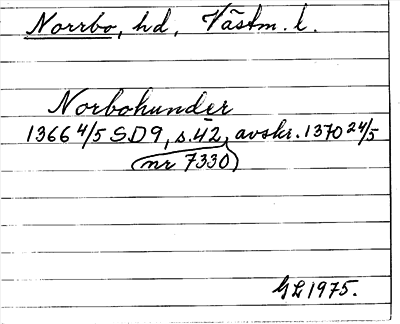 Norrbo, hd, Västm. l.
Norbohunder
1366 4/5 SD9, s. 42, avskr. 1370 24/5
(nr 7330)
GL 1975.